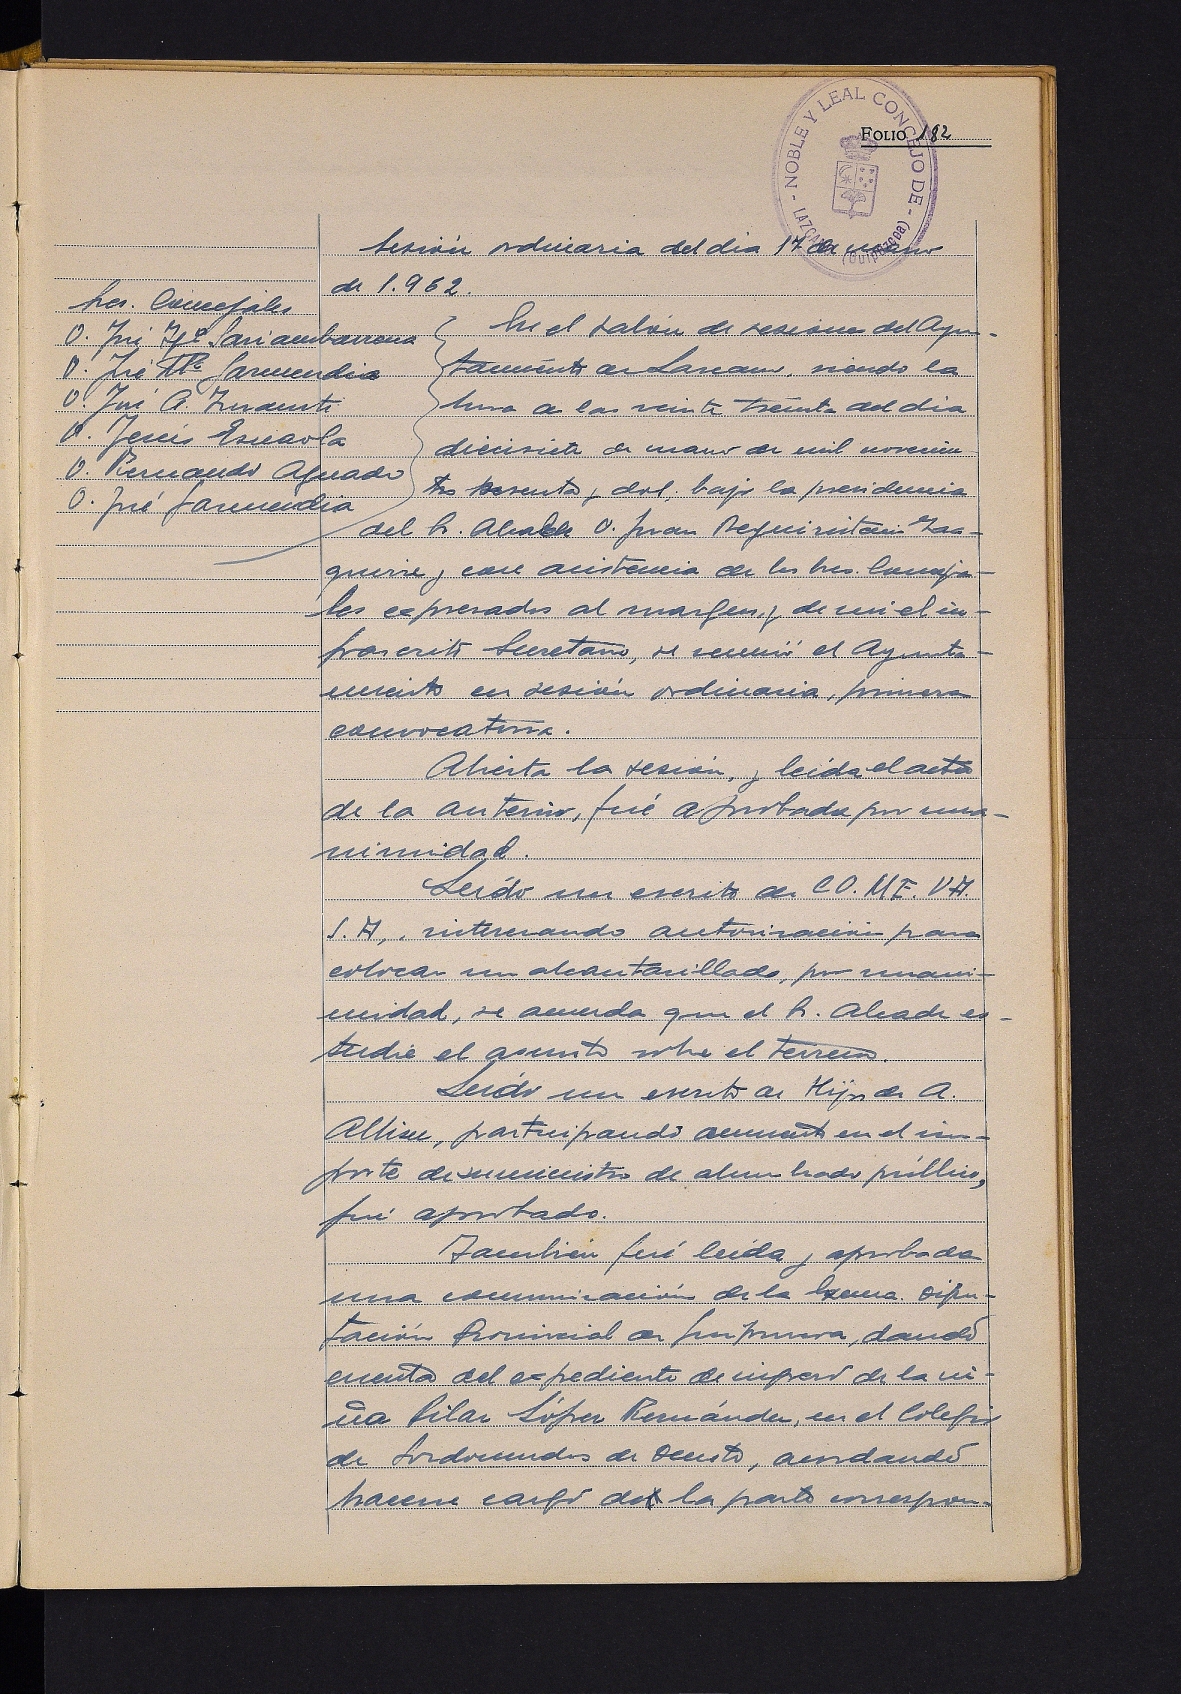 FOLIO 182
- NOBLE Y LEAL CONCEJO DE -
LAZCANO (Guipúzcoa)
Sesión ordinaria del dia 17 de marzo
de 1.962.
Sres. Concejales
D. José
D. José Mª Garmendia
D. José A.
D. Jesús
D. Fernando Aguado
D. José Garmendia
En el salón de sesiones del Ayun-
tamiento de Lazcano, siendo la
hora de las veinte treinta del dia
diecisiete de marzo de mil novecien-
tos sesenta y dos, bajo la presidencia
del Sr. Alcalde D. Juan
y con asistencia de los Sres. Conceja-
les expresados al margen, y de mi el in-
frascrito Secretario, se reunió el Ayunta-
miento en sesión ordinaria, primera
convocatoria.
Abierta la sesión, y leida el acta
de la anterior, fué aprobada por una-
nimidad.
Leido un escrito de CO.ME.VA.
S.A., interesando autorización para
colocar un alcantarillado, por unani-
midad, se acuerda que el Sr. Alcade es-
tudie el asunto sobre el terreno.
Leido un escrito de Hijos de A.
Albisu, participando aumento en el im-
porte de suministro de alumbrado público,
fué aprobado.
Tambien fué leida y aprobada
una comunicación de la Excma. Dipu-
tación Provincial de Guipuzcoa, dando
cuenta del expediente de ingreso de la ni-
ña Pilar López Fernández, en el Colegio
de Sordomudos de Deusto, acordando
hacerse cargo de la parte correspon-